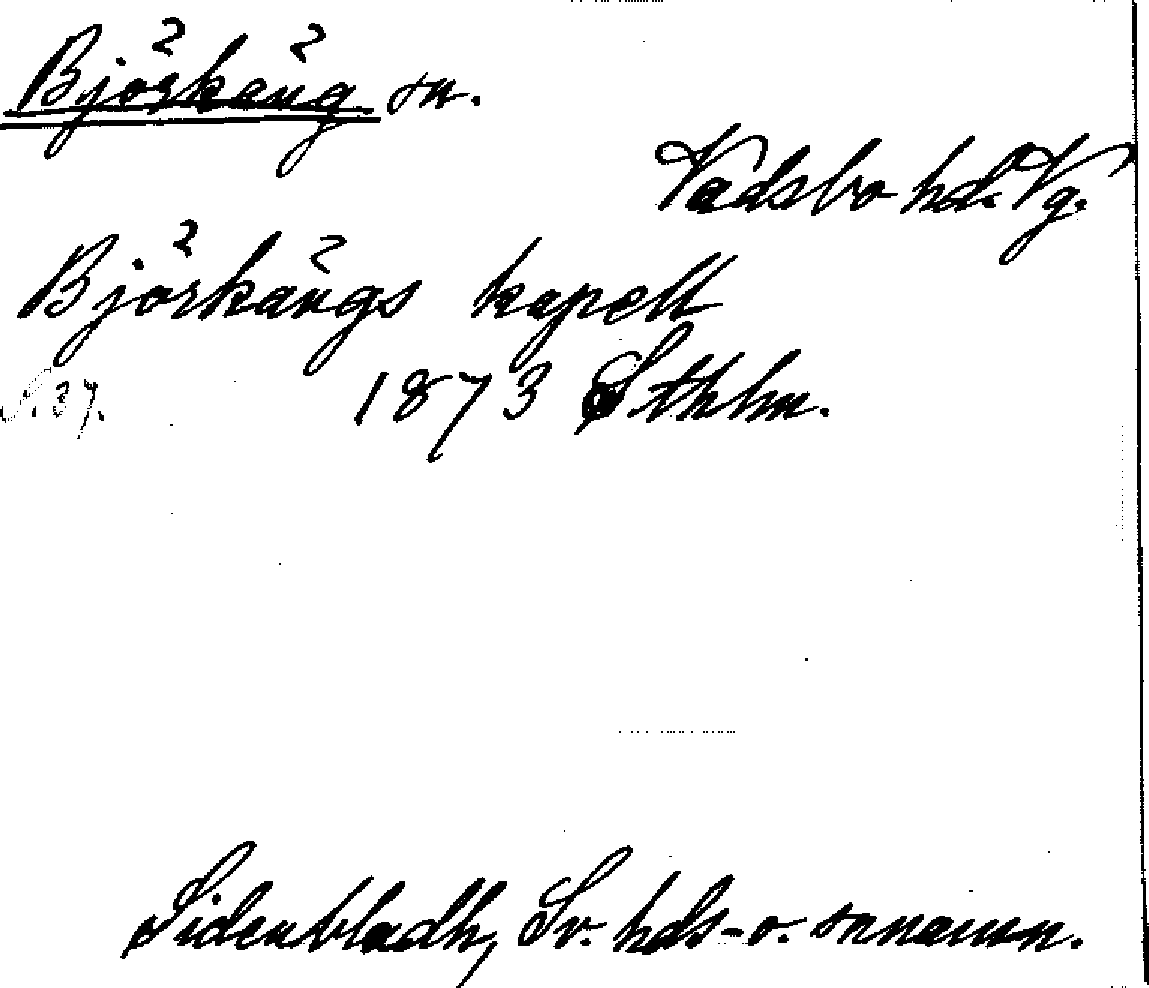 Björkäng sn.
Vadsbo hd. Vg.
Björkängs kapell
S. 37. 1873 Sthlm.
Sidenbladh, Sv. hds- o. snnamn.